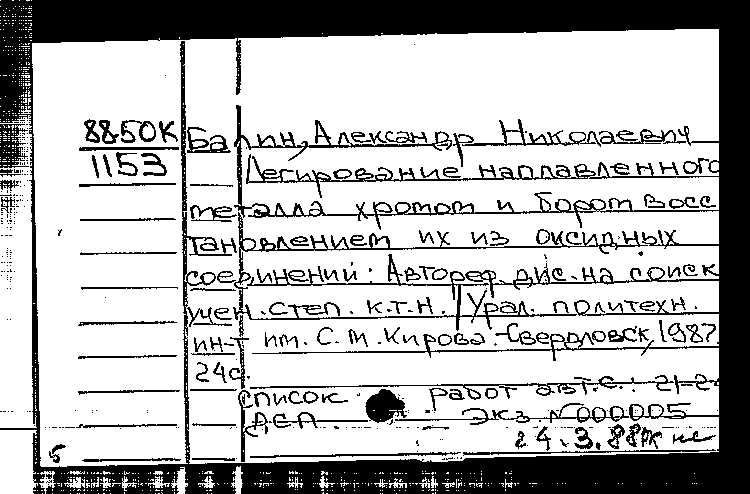 8850К Балин, Александр Николаевич
1153 Легирование наплавленного
металла хромом и бором восс
тановлением их из оксидных
соединений: Автореф. дис. на соиск
учен. степ. к.т.н. / Урал. политехн.
ин-т им. С. М. Кирова.-Свердловск, 1987.
24с.
список работ авт. с.: 21-2
ДСП. Экз №000005
5 24.3.88